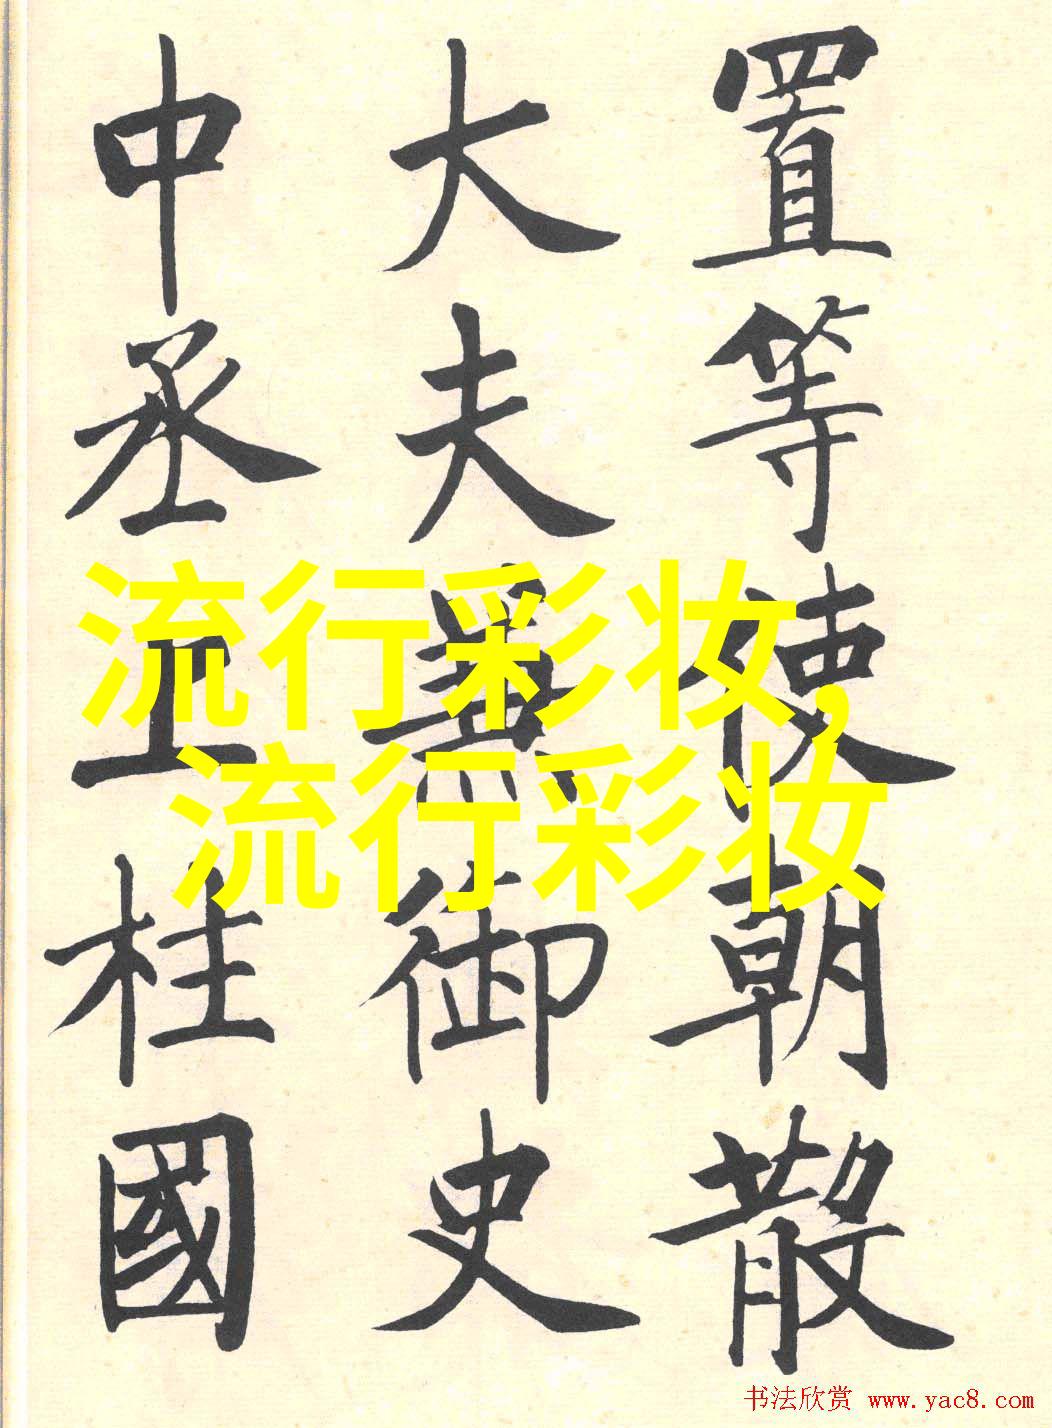 置等使朝散
大夫兼御史
中丞上柱國
流行彩妆,
流行彩妆
书法欣赏 www.yac8.com